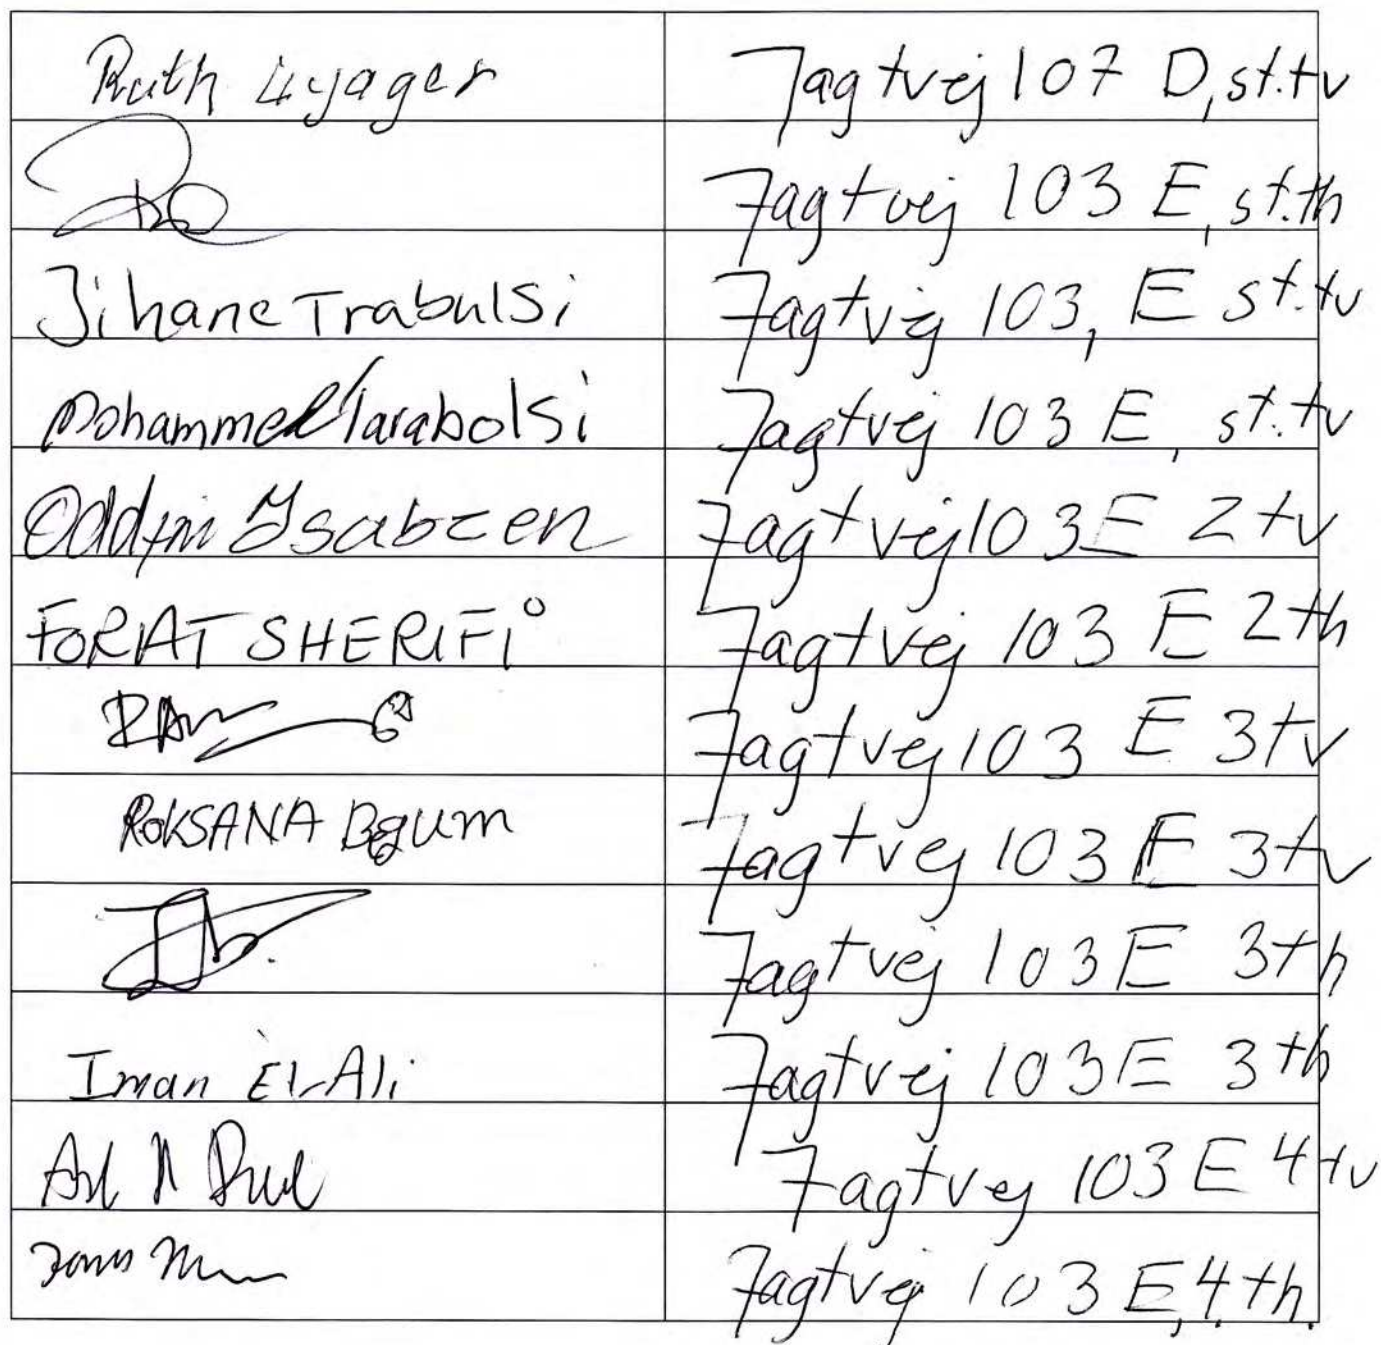 Ruth Jagtvej 107 D, st.tv
Jagtvej 103 E, st.th
Jihane Trabulsi Jagtvej 103, E st.tv
Mohammed Tarabolsi Jagtvej 103 E, st.tv
Jagtvej 103 E 2 tv
FORAT SHERIFI Jagtvej 103 E 2 th
Jagtvej 103 E 3 tv
ROKSANA Begum Jagtvej 103 E 3 tv
Jagtvej 103 E 3 th
Iman El-Ali Jagtvej 103 E 3 th
Jagtvej 103 E 4 tv
Jagtvej 103 E, 4. th.